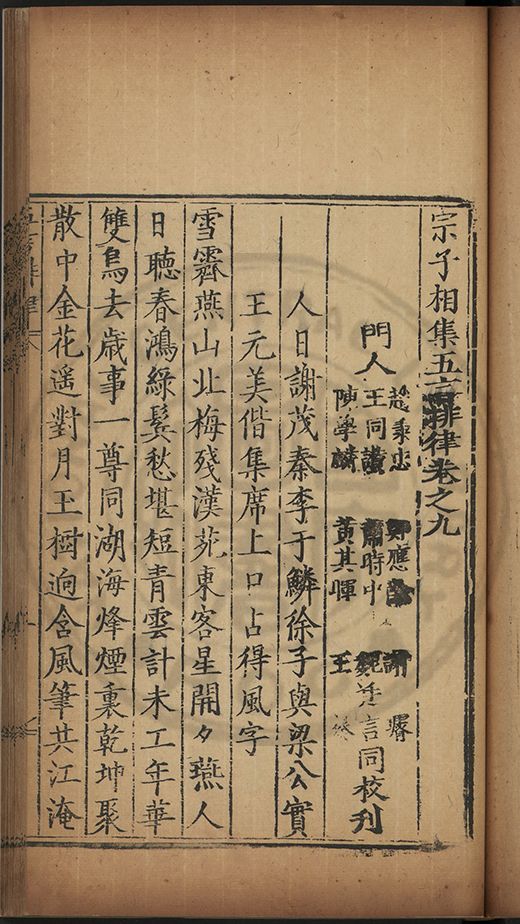 宗子相集五言排律卷之九
門人
趙秉忠 應 謝
王同 蕭時中 言
陳學麟 黃其暉 王
同校刋
人日謝茂秦李于鱗徐子與梁公實
王元美偕集席上口占得風字
雪霽燕山北梅殘漢苑東客星開夕燕人
日聽春鴻綠鬂愁堪短青雲計未工年華
雙鳥去歲事一尊同湖海烽煙裏乾坤聚
散中金花遥對月玉樹逈含風筆共江淹